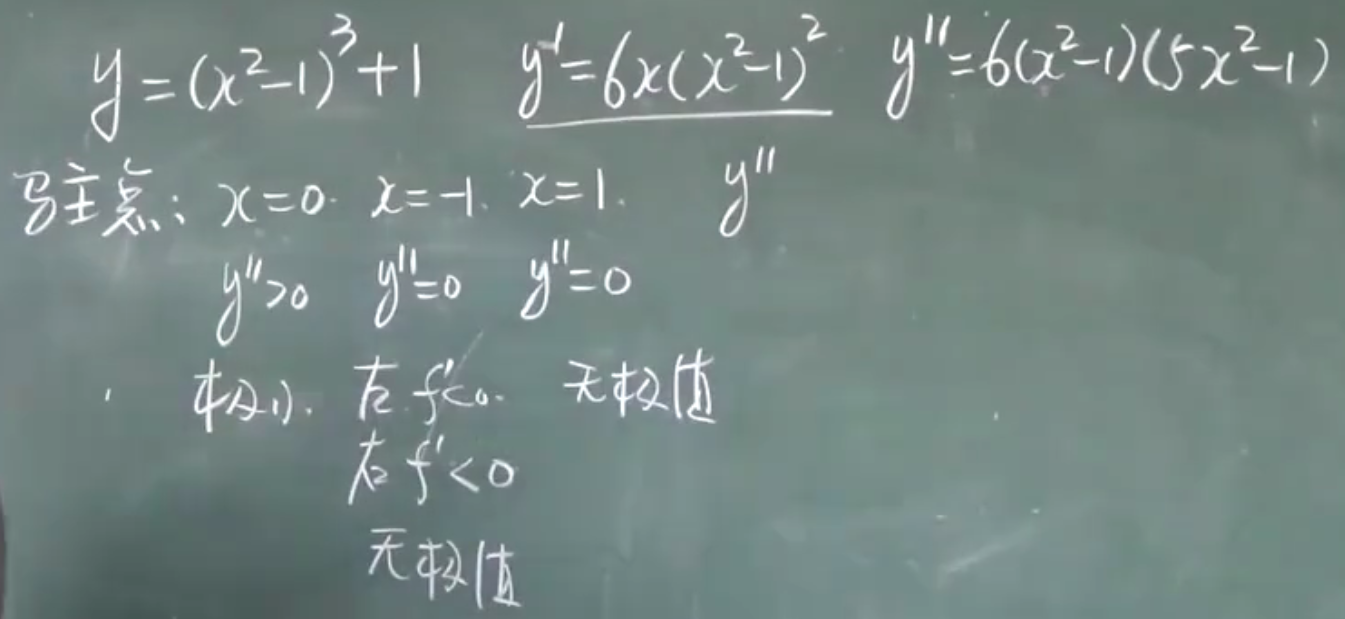 y=(x²-1)³+1 y'=6x(x²-1)² y''=6(x²-1)(5x²-1)
驻点: x=0. x=-1. x=1. y''
y''>0 y''=0 y''=0
极小. 左f'<0. 无极值
右f'<0
无极值